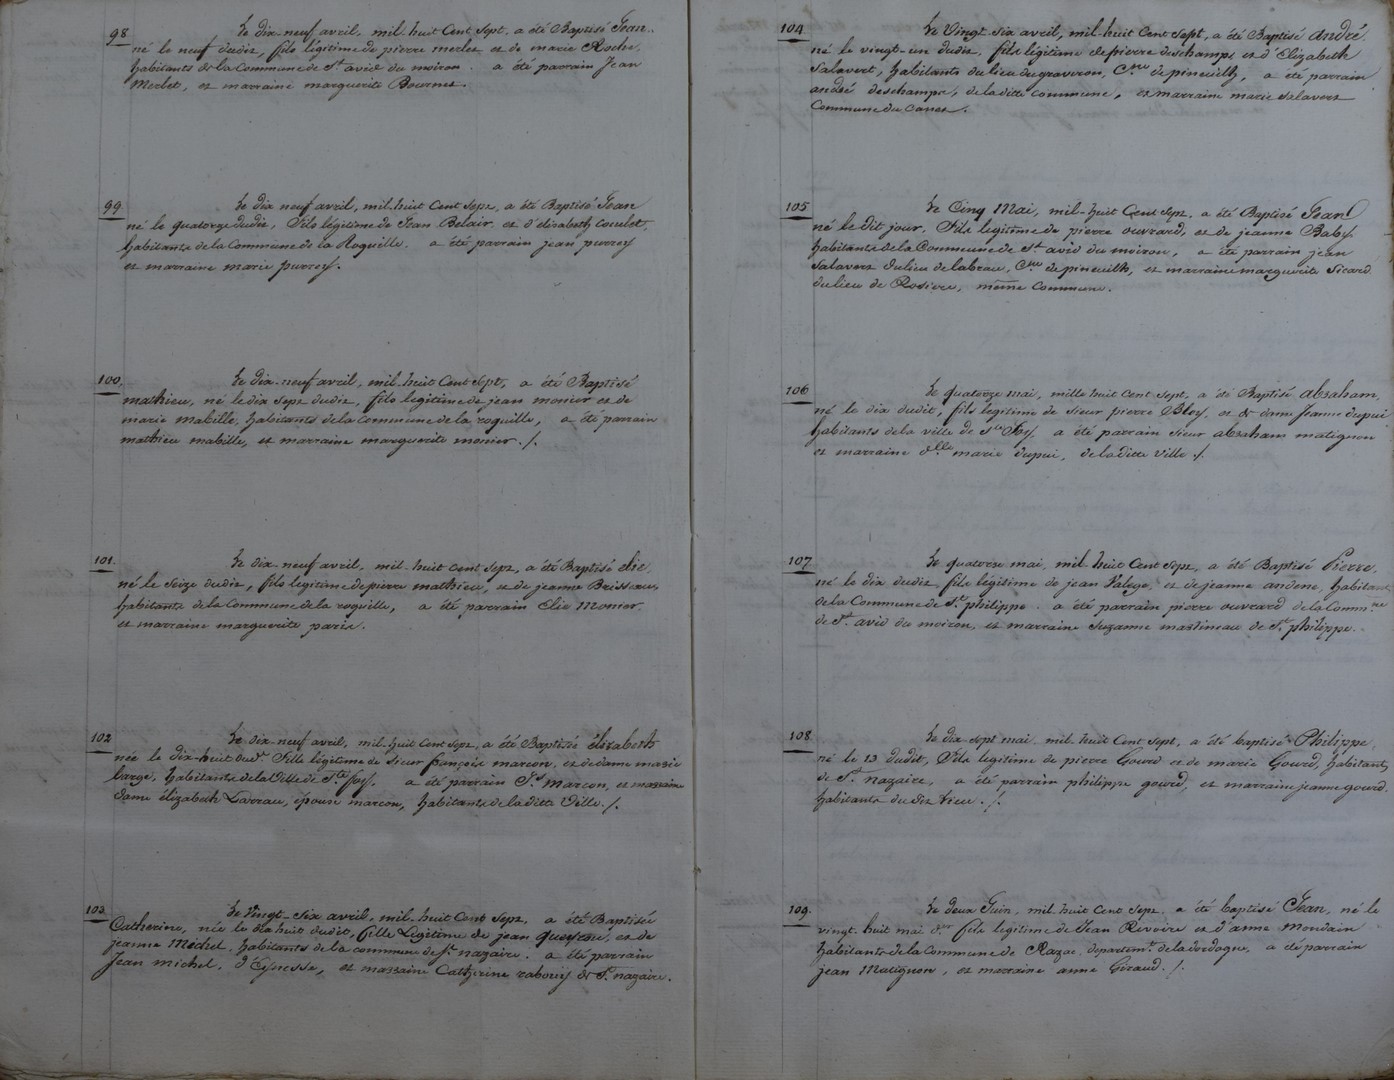 98
Le dix neuf avril, mil huit Cent Sept, a été Baptisé Jean..
né le neuf dudit, fils légitime de pierre merlet et de marie Roche.
habitants de la Commune de St avid du moiron. a été parrain Jean
Merlet, et marraine marguerite Bournet
99
Le dix neuf avril, mil huit Cent Sept, a été Baptisé Jean
né le quatorze dudit, Fils légitime de Jean Belair et d'élizabeth
habitants de la Commune de la Roquille. a été parrain jean
et marraine marie
100.
Le dix neuf avril, mil huit Cent Sept, a été Baptisé
mathieu, né le dix sept dudit, fils legitime de jean monier et de
marie mabille, habitants de la Commune de la roquille, a été parrain
mathieu mabille, et marraine marguerite monier./.
101.
Le dix neuf avril, mil huit Cent Sept, a été Baptisé élie
né le Seize dudit, fils legitime de pierre mathieu, et de jeanne Brissau,
habitants de la Commune de la roquille, a été parrain Elie Monier
et marraine marguerite paris.
102
Le dix neuf avril, mil huit Cent Sept, a été Baptisée élizabeth
née le dix huit dudt. Fille légitime de Sieur françois marcon, et de dame marie
large, habitants de la Ville de Ste foy. a été parrain Sr marcon, et marraine
dame élizabeth Larrau, épouse marcon, habitants de la ditte Ville./.
103.
Le Vingt-Six avril, mil huit Cent Sept, a été Baptisée
Catherine, née le dix huit dudit, fille Légitime de jean et de
jeanne Michel, habitants de la commune de St. nazaire. a été parrain
Jean michel, d'Eynesse, et marraine Catherine de St. nazaire.
104
Le Vingt Six avril, mil huit Cent Sept, a été Baptisé André
né le vingt-un dudit, fils légitime de pierre deschamps et d'Elizabeth
Salavert, habitants du lieu du graveron, Cne de pineuilh, a été parrain
andré deschamps, de la ditte commune, et marraine marie Salavert
Commune du
105
Le Cinq Mai, mil huit Cent Sept, a été Baptisé Jean
né le dit jour, Fils legitime de pierre ouvrard, et de jeanne Baby
habitants de la Commune de St avid du moiron, a été parrain jean
Salavert du lieu de labeau, Cne de pineuilh, et marraine marguerite Sicard
du lieu de Rosiere, même Commune.
106
Le quatorze mai, mille huit Cent Sept, a été Baptisé abraham,
né le dix dudit, fils legitime de Sieur pierre Bloy, et de dame Jeanne dupui
habitants de la ville de Ste Foy. a été parrain Sieur abraham matignon
et marraine dlle marie dupui, de la ditte ville./.
107
Le quatorze mai, mil huit Cent Sept, a été Baptisé Pierre,
né le dix dudit, fils légitime de jean Valege, et de jeanne habitants
de la Commune de St. philippe. a été parrain pierre ouvrard de la Commne
de St. avid du moiron, et marraine Suzanne martineau de St. philippe.
108
Le dix Sept mai mil huit Cent Sept, a été baptisé Philippe,
né le 13 dudit, Fils légitime de pierre Gourd et de marie Gourd, habitants
de St. nazaire, a été parrain philippe gourd, et marraine jeanne gourd.
habitants du dit Lieu./.
109.
Le deux Juin, mil huit Cent Sept, a été baptisé Jean, né le
vingt huit mai der fils legitime de Jean Rivoire et d'anne Mondain
habitants de la Commune de Razac departemt. de la dordogne, a été parrain
jean Matignon, et marraine anne Giraud./.